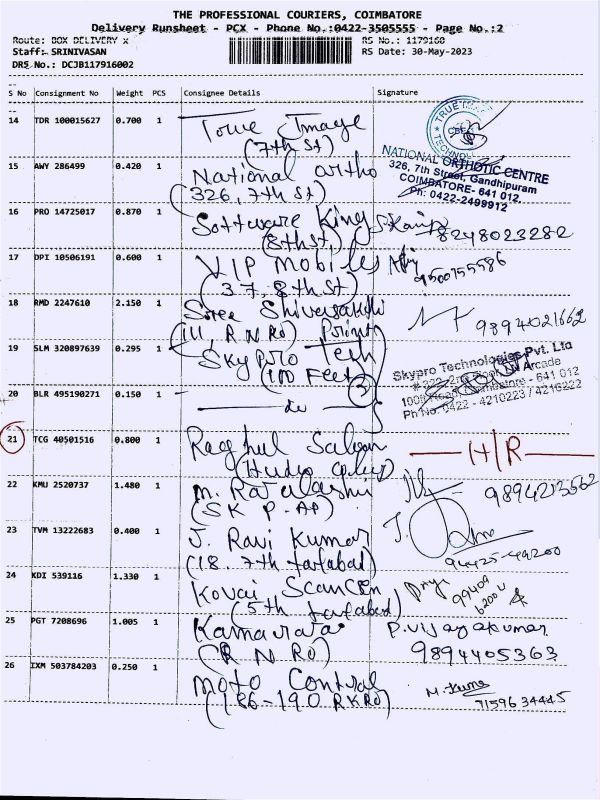 THE PROFESSIONAL COURIERS, COIMBATORE
Delivery Runsheet - PCX - Phone No.:0422-3505555 - Page No.:2
Route: BOX DELIVERY x
RS No.: 1179160
Staff: SRINIVASAN
RS Date: 30-May-2023
DRS No.: DCJB117916002
S No Consignment No Weight PCS Consignee Details Signature
14 TDR 100015627 0.700 1 True Image
(7th St)
TRUE IMAGE
CBE
15 AWY 286499 0.420 1 National ortho
(326, 7th St)
NATIONAL ORTHOTIC CENTRE
326, 7th Street, Gandhipuram
COIMBATORE- 641 012.
Ph: 0422-2499912
16 PRO 14725017 0.870 1 Software Kings
(8th St) 8248023282
17 DPI 10506191 0.600 1 VIP Mobiles
(37, 8th St) 9500755586
18 RMD 2247610 2.150 1 Sree Shivasakthi
(111, R N Rd) Print 9894021662
19 SLM 320897639 0.295 1 Sky pro Tech
(100 Feet)
Skypro Technologies Pvt. Ltd
Arcade
100ft Road, Coimbatore - 641 012
Ph No. 0422 - 4210223 / 4210222
20 BLR 495190271 0.150 1 do
21 TCG 40501516 0.800 1 Raghul Saloon
H/R
22 KMU 2520737 1.480 1 M. Rajalashmi
(S K P - AP) 9894213562
23 TVM 13222683 0.400 1 J. Ravi Kumar
(18. 7th tatabad) 94425-49200
24 KDI 539116 1.330 1 Kovai Scan Cen
(5th tatabad) Priya
25 PGT 7208696 1.005 1 Kamaraj
(R N Rd)
P. Vijayakumar
9894405363
26 IXM 503784203 0.250 1 Moto Control
(186-190 R K Rd)
7159634445